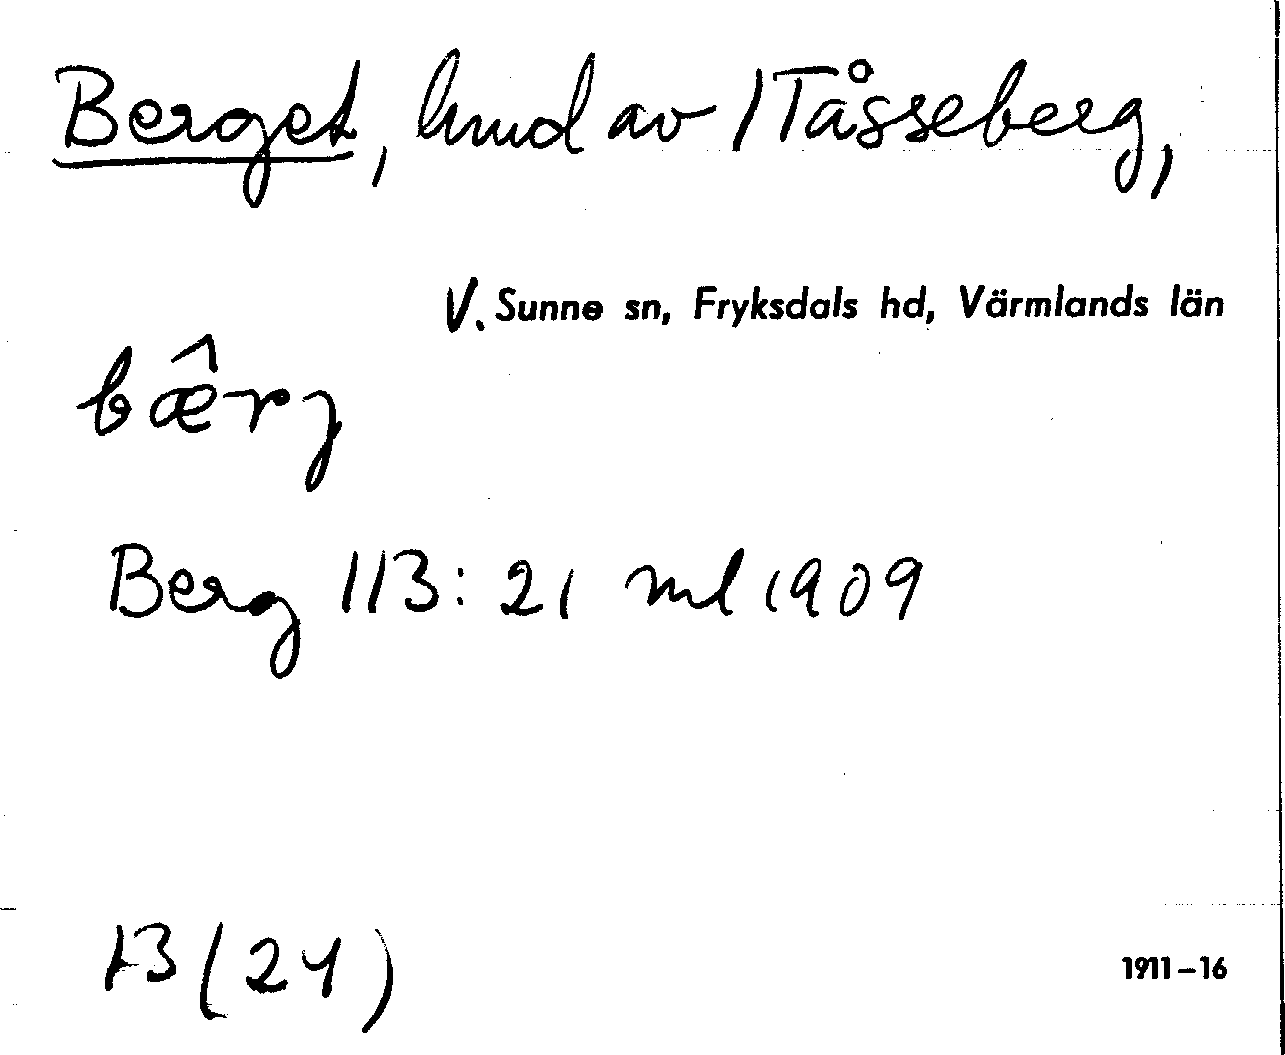 Berget, hmd av 1 Tåsseberg,
V. Sunne sn, Fryksdals hd, Värmlands län
bæ̂rj
Berg 113: 21 ml 1909
13 (24)
1911–16